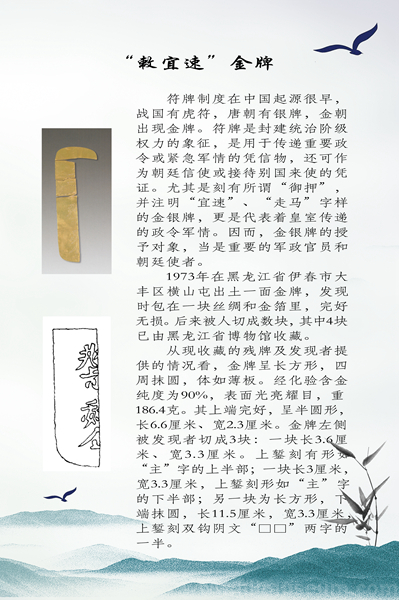 “敕宜速”金牌
符牌制度在中国起源很早，
战国有虎符，唐朝有银牌，金朝
出现金牌。符牌是封建统治阶级
权力的象征，是用于传递重要政
令或紧急军情的凭信物，还可作
为朝廷信使或接待别国来使的凭
证。尤其是刻有所谓“御押”，
并注明“宜速”、“走马”字样
的金银牌，更是代表着皇室传递
的政令军情。因而，金银牌的授
予对象，当是重要的军政官员和
朝廷使者。
1973年在黑龙江省伊春市大
丰区横山屯出土一面金牌，发现
时包在一块丝绸和金箔里，完好
无损。后来被人切成数块，其中4块
已由黑龙江省博物馆收藏。
从现收藏的残牌及发现者提
供的情况看，金牌呈长方形，四
周抹圆，体如薄板。经化验含金
纯度为90%，表面光亮耀目，重
186.4克。其上端完好，呈半圆形，
长6.6厘米、宽2.3厘米。金牌左侧
被发现者切成3块：一块长3.6厘
米、宽3.3厘米。上錾刻有形如
“主”字的上半部；一块长3厘米，
宽3.3厘米，上錾刻形如“主”字
的下半部；另一块为长方形，下
端抹圆，长11.5厘米，宽3.3厘米，
上錾刻双钩阴文“□□”两字的
一半。